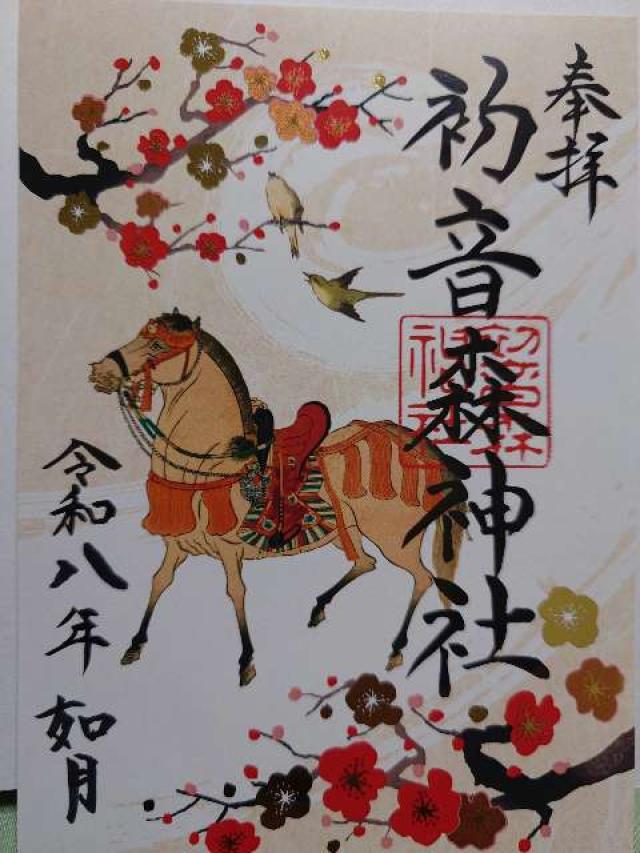 奉拝
初音森神社
初音森
神社
令和八年 如月